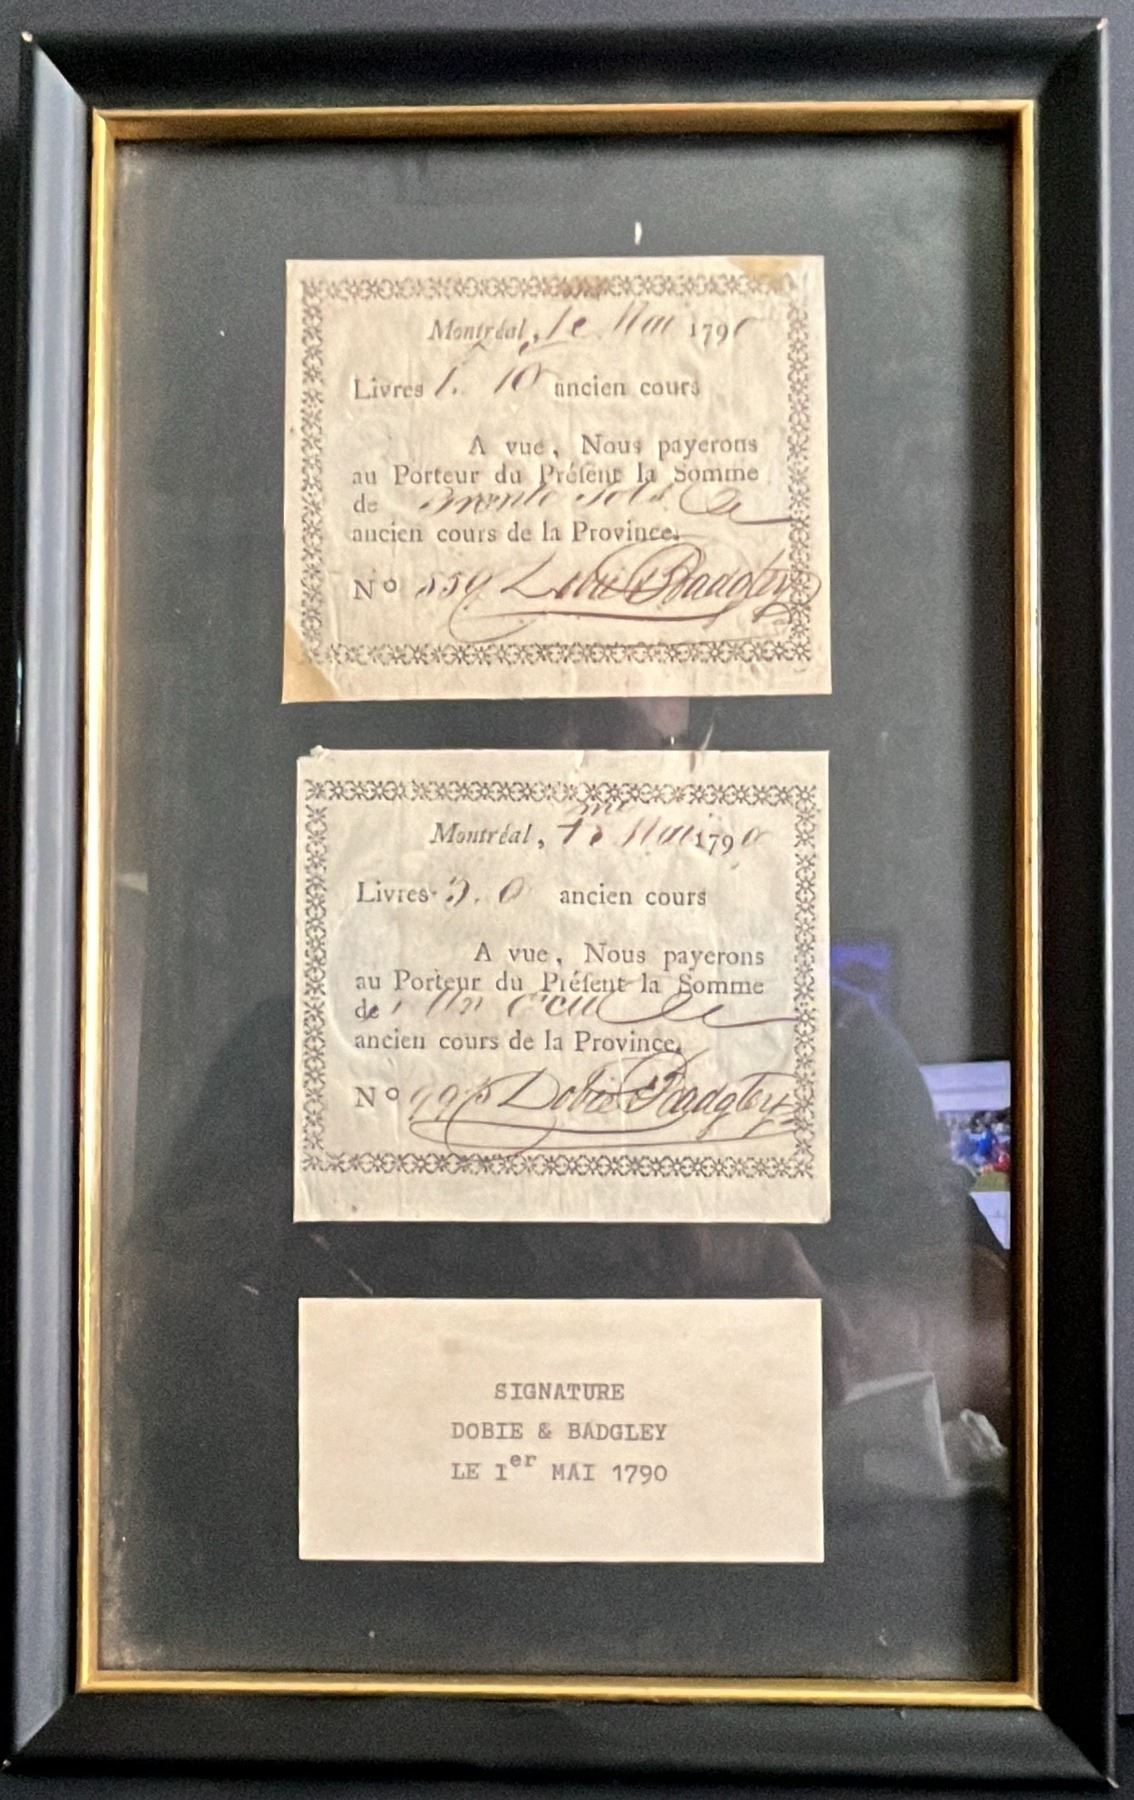 Montréal, 1e Mai 1790
Livres 1. 10 ancien cours
A vue, Nous payerons
au Porteur du Préſent la Somme
de trente sols
ancien cours de la Province.
No 559 Dobie Badgley
Montréal, Mai 1790
Livres 3. 0 ancien cours
A vue, Nous payerons
au Porteur du Préſent la Somme
de Un Ecu
ancien cours de la Province.
No 995 Dobie Badgley
SIGNATURE
DOBIE & BADGLEY
LE Ier MAI 1790